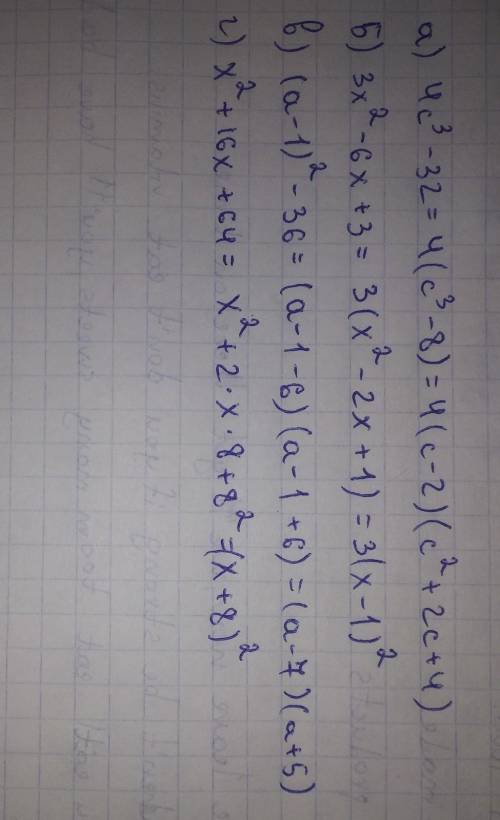 а) 4c³ - 32 = 4(c³ - 8) = 4(c - 2)(c² + 2c + 4)
б) 3x² - 6x + 3 = 3(x² - 2x + 1) = 3(x - 1)²
в) (a - 1)² - 36 = (a - 1 - 6)(a - 1 + 6) = (a - 7)(a + 5)
г) x² + 16x + 64 = x² + 2 · x · 8 + 8² = (x + 8)²